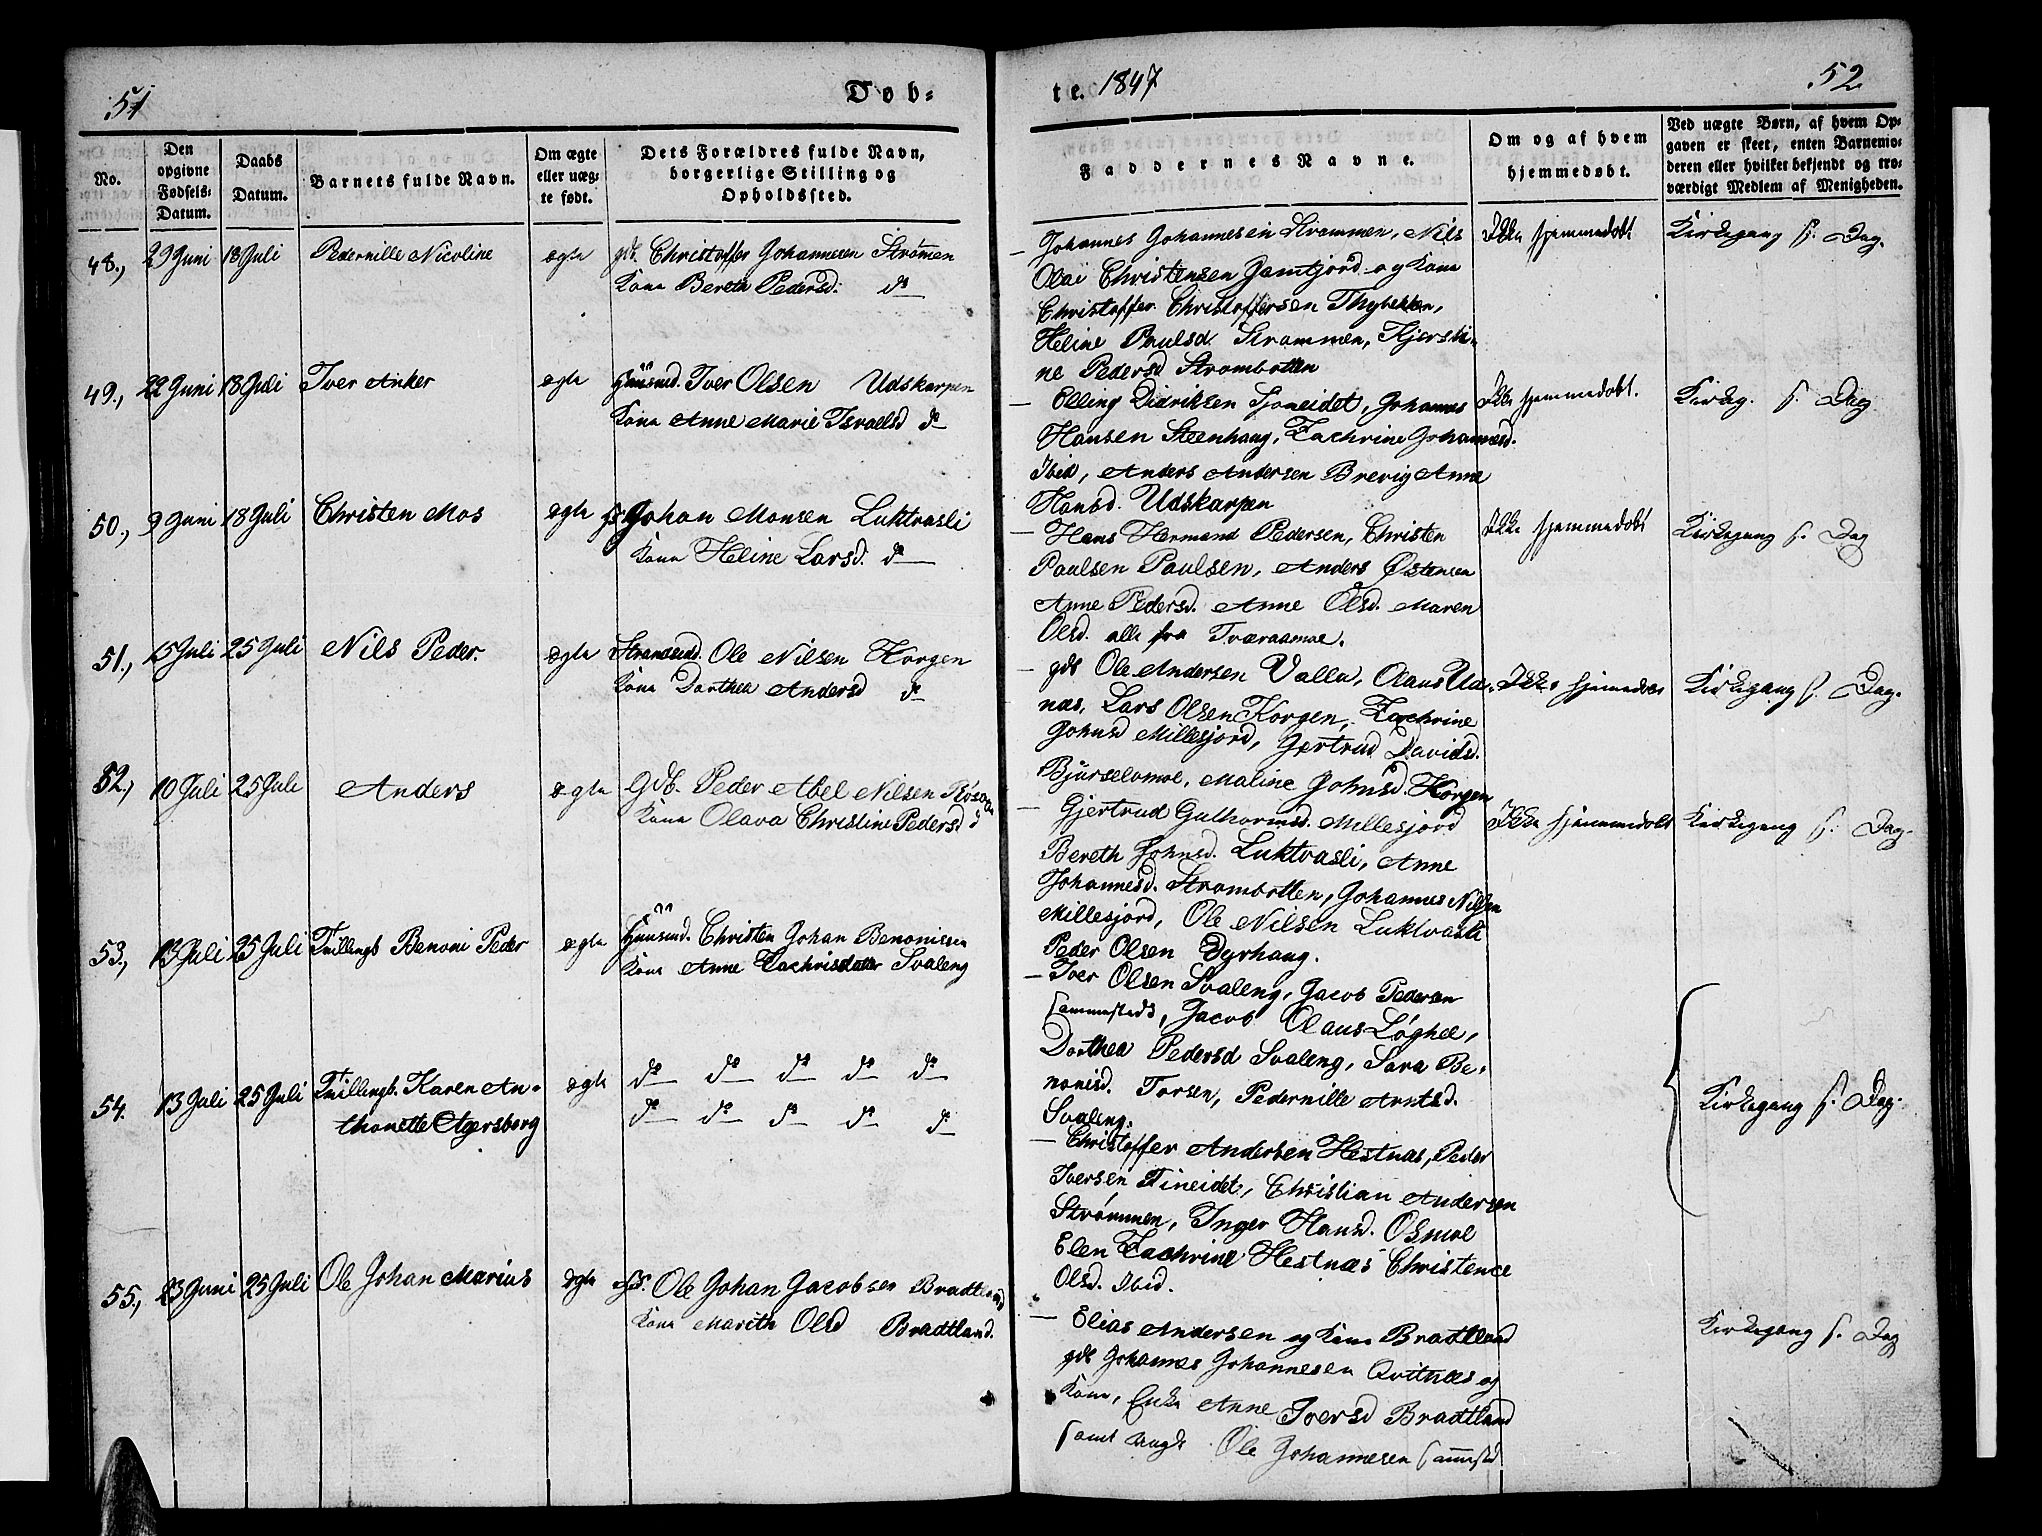 51
Døb-
te. 1847
52
No.
Den opgivne Fødsels-Datum.
Daabs Datum.
Barnets fulde Navn.
Om ægte eller uæg-te født.
Dets Forældres fulde Navn, borgerlige Stilling og Opholdssted.
Faddernes Navne.
Om og af hvem hjemmedøbt.
Ved uægte Børn, af hvem Op-
gaven er skeet, enten Barnemo-
deren eller hvilket bekjendt og tro-
værdigt Medlem af Menigheden.
48., 29 Juni 18 Juli Pedernille Nicoline ægte gb. Christoffer Johannesen Strømen
Kone Bereth Pedersd: do
Johannes Johannesen Strømmen, Nils
Olai Christensen Jamtjord og Kone
Christoffer Christoffersen Thybekken,
Heline Paulsd. Strømmen, Kjersti-
ne Pedersd Strombotten
Ikke hjemmedøbt
Kirkegang s. Dag.
49., 22 Juni 18 Juli Iver Anker ægte Huusmd. Iver Olsen Udskarpen
Kone Anne Marie Israelsd do
Elling Didriksen Sjoneidet, Johannes
Hansen Steenhaug, Zachrine Johannesd.
Ibid, Anders Andersen Brevig Anne
Hansd. Udskarpen
Ikke hjemmedøbt.
Kirkeg. s. Dag
50., 9 Juni 18 Juli Christen Mos ægte Johan Monsen Luktvasli
Kone Heline Larsd. do
Hans Hermand Pedersen, Christen
Paulsen Paulsen, Anders Østensen
Anne Pedersd. Anne Olsd. Maren
Olsd. alle fra Tværaamoe.
Ikke hjemmedøbt
Kirkegang s. Dag
51., 15 Juli 25 Juli Nils Peder. ægte Strandsid. Ole Nilsen Korgen
Kone Dorthea Andersd do
gdb Ole Andersen Valla, Olaus
næs, Lars Olsen Korgen, Zachrine
Johnsd Millesjord, Gertrud Davidsd.
Bjurselvmoe, Maline Johnsd. Korgen
Ikke hjemmedøbt
Kirkegang s. Dag.
52., 10 Juli 25 Juli Anders ægte Gdb. Peder Abel Nilsen Røsaa
Kone Olava Christine Pedersd d
Gjertrud Gulhormsd. Millesjord
Bereth Johnsd. Luktvasli, Anne
Johannesd. Strombotten, Johannes Nilsen
Millesjord, Ole Nilsen Luktvasli
Peder Olsen Dyrhaug.
Ikke hjemmedøbt
Kirkegang s. Dag.
53., 13 Juli 25 Juli Tvillingb Benoni Peder ægte Huusmd. Christen Johan Benonisen
Kone Anne Zachrisdatter Svaleng
Iver Olsen Svaleng, Jacob Pedersen
sammesteds, Jacob Olaus Løghel,
Dorthea Pedersd Svaleng, Sara Be-
nonisd. Forsen, Pedernille Arntsd.
Svaleng.
54. 13 Juli 25 Juli Tvillingb. Karen An-
thonette Agersborg
ægte do do do do do
do do do do do
Christoffer Andersen Hestnæs, Peder
Iversen Fineidet, Christian Andersen
Strømmen, Inger Hansd. Osmoe
Elen Zachrine Hestnæs Christence
Olsd. Ibid.
Kirkegang s. Dag.
55., 23 Juni 25 Juli Ole Johan Marius ægte Ole Johan Jacobsen Bradtland
Kone Marith Olsd Bradtland.
Elias Andersen og Kone Bradtland
gdb Johannes Johannesen Qvitnæs og
Kone, Enke Anne Iversd Bradtland
samt Ole Johannesen sammsted
Kirkegang s. Dag